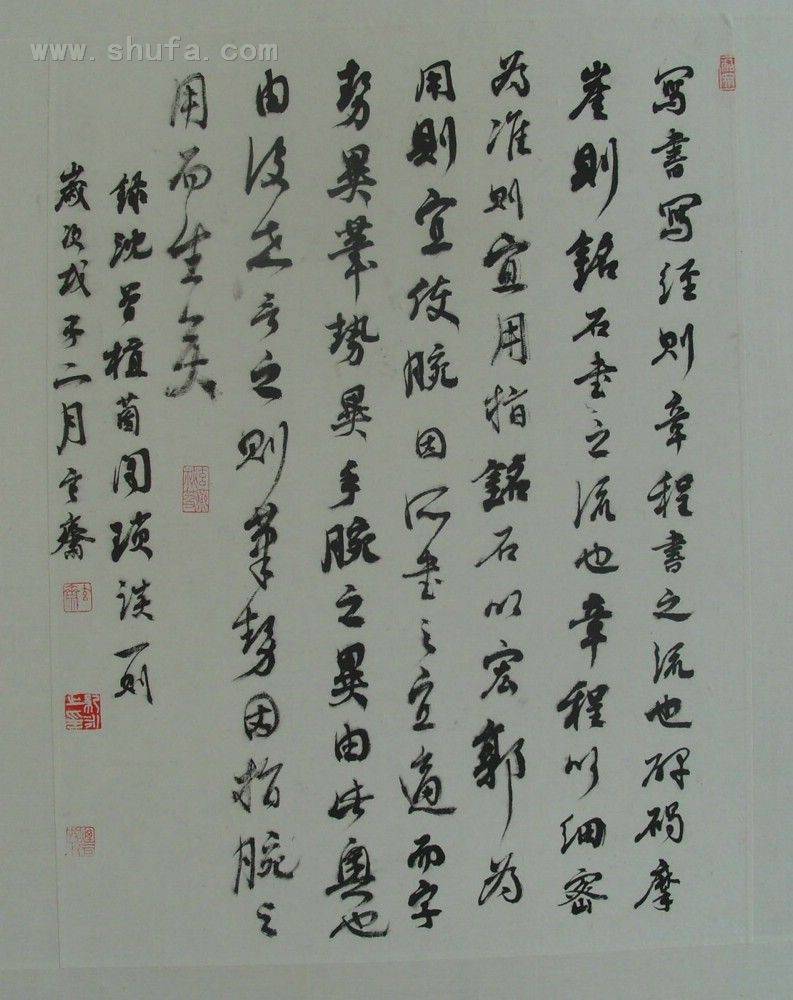 www.shufa.com
寫書寫經則章程書之流也碑碣摩
崖則銘石書之流也章程以細密
為准則宜用指銘石以宏郭為
用則宜使腕因所書之宜適而字
勢異筆勢異手腕之異由此興也
由後世言之則筆勢因指腕之
用而生矣
錄沈曾植菌閣瑣談一則
歲次戊子二月玄齋